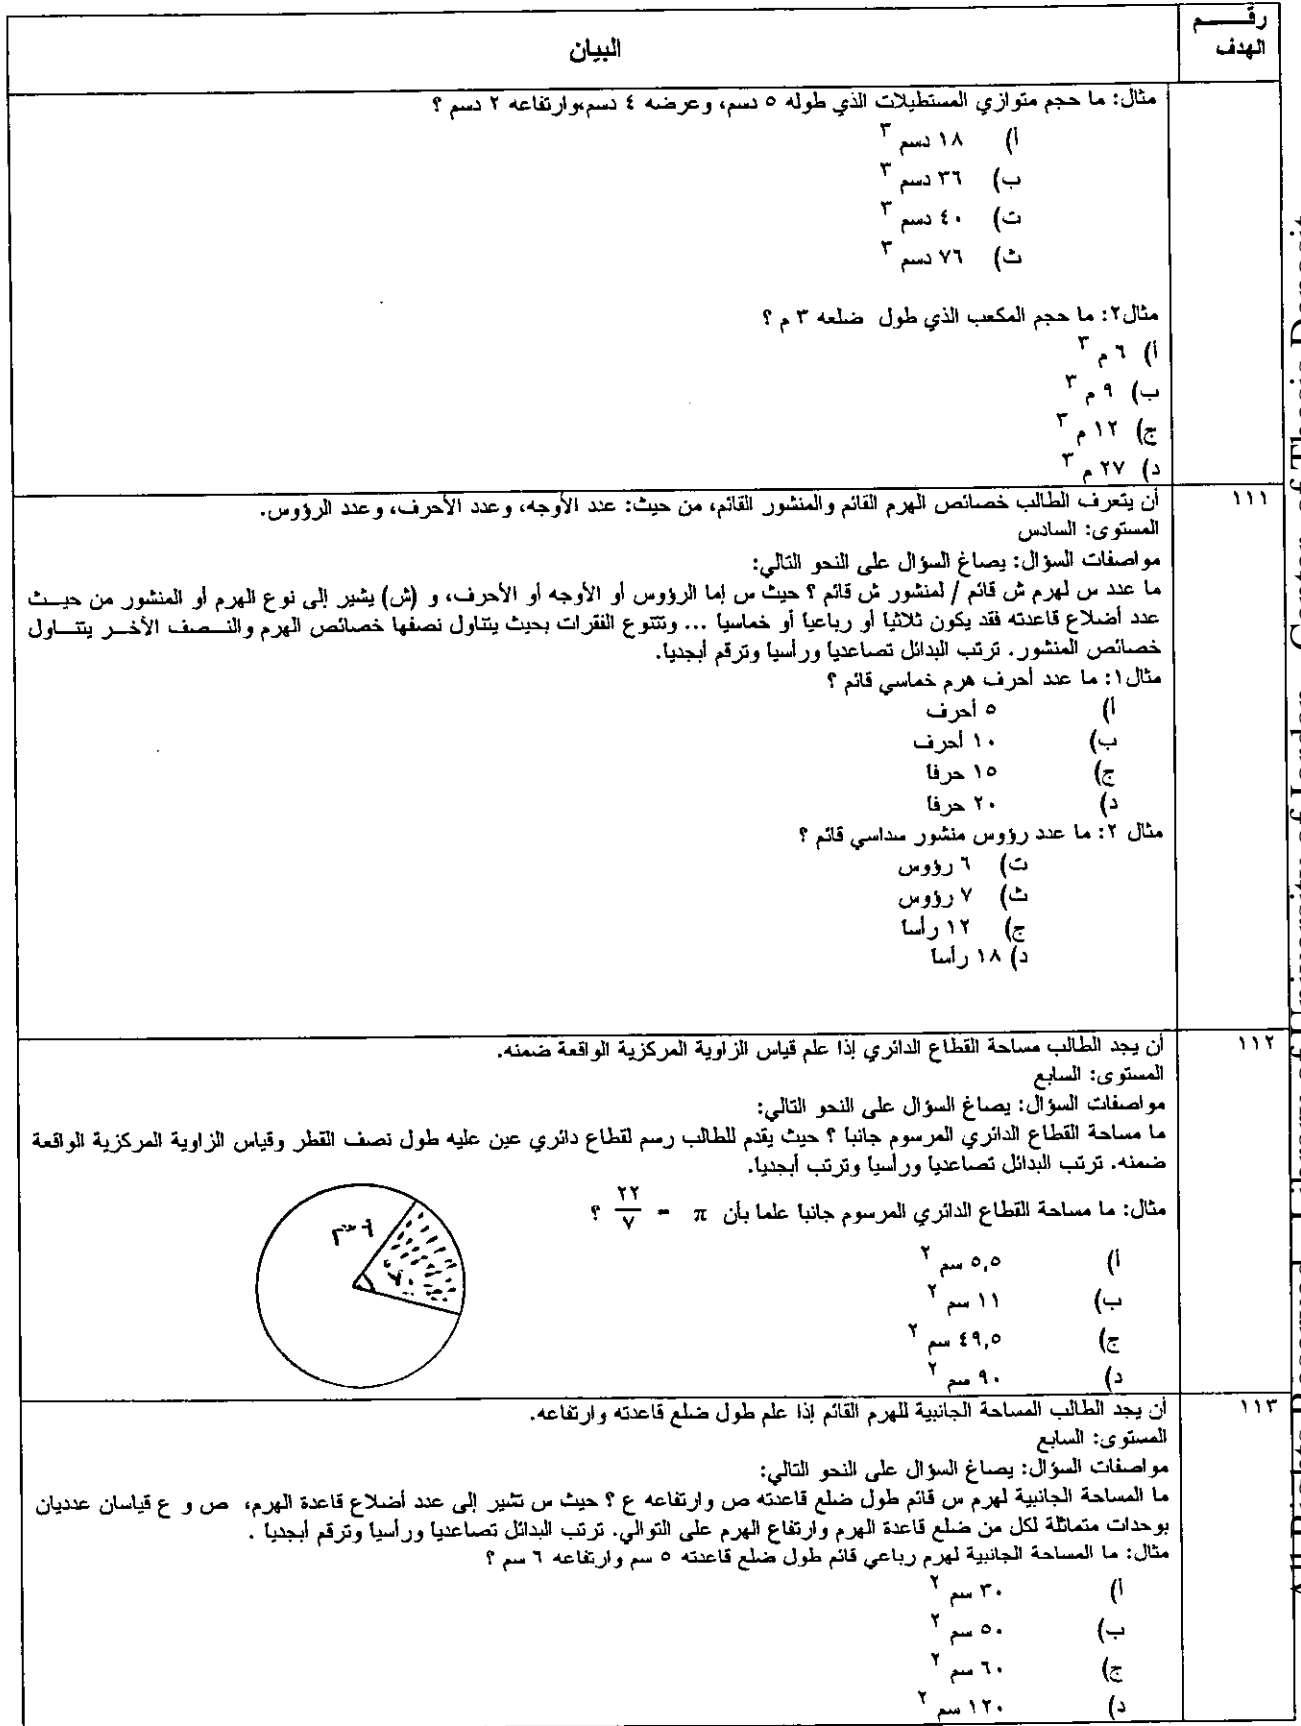 رقم
الهدف
البيان
مثال: ما حجم متوازي المستطيلات الذي طوله ٥ دسم، وعرضه ٤ دسم،وارتفاعه ٢ دسم ؟
أ) ١٨ دسم ٣
ب) ٣٦ دسم ٣
ت) ٤٠ دسم ٣
ث) ٧٦ دسم ٣
مثال٢: ما حجم المكعب الذي طول ضلعه ٣ م ؟
أ) ٦ م ٣
ب) ٩ م ٣
ج) ١٢ م ٣
د) ٢٧ م ٣
١١١
أن يتعرف الطالب خصائص الهرم القائم والمنشور القائم، من حيث: عدد الأوجه، وعدد الأحرف، وعدد الرؤوس.
المستوى: السادس
مواصفات السؤال: يصاغ السؤال على النحو التالي:
ما عدد س لهرم ش قائم / لمنشور ش قائم ؟ حيث س إما الرؤوس أو الأوجه أو الأحرف، و (ش) يشير إلى نوع الهرم أو المنشور من حيث
عدد أضلاع قاعدته فقد يكون ثلاثيا أو رباعيا أو خماسيا ... وتتنوع الفقرات بحيث يتناول نصفها خصائص الهرم والنصف الأخر يتناول
خصائص المنشور. ترتب البدائل تصاعديا ورأسيا وترقم أبجديا.
مثال١: ما عدد أحرف هرم خماسي قائم ؟
أ) ٥ أحرف
ب) ١٠ أحرف
ج) ١٥ حرفا
د) ٢٠ حرفا
مثال ٢: ما عدد رؤوس منشور سداسي قائم ؟
ت) ٦ رؤوس
ث) ٧ رؤوس
ج) ١٢ رأسا
د) ١٨ رأسا
١١٢
أن يجد الطالب مساحة القطاع الدائري إذا علم قياس الزاوية المركزية الواقعة ضمنه.
المستوى: السابع
مواصفات السؤال: يصاغ السؤال على النحو التالي:
ما مساحة القطاع الدائري المرسوم جانبا ؟ حيث يقدم للطالب رسم لقطاع دائري عين عليه طول نصف القطر وقياس الزاوية المركزية الواقعة
ضمنه. ترتب البدائل تصاعديا ورأسيا وترتب أبجديا.
مثال: ما مساحة القطاع الدائري المرسوم جانبا علما بأن π = ٢٢/٧ ؟
أ) ٥,٥ سم ٢
ب) ١١ سم ٢
ج) ٤٩,٥ سم ٢
د) ٩٠ سم ٢
١١٣
أن يجد الطالب المساحة الجانبية للهرم القائم إذا علم طول ضلع قاعدته وارتفاعه.
المستوى: السابع
مواصفات السؤال: يصاغ السؤال على النحو التالي:
ما المساحة الجانبية لهرم س قائم طول ضلع قاعدته ص وارتفاعه ع ؟ حيث س تشير إلى عدد أضلاع قاعدة الهرم، ص و ع قياسان عدديان
بوحدات متماثلة لكل من ضلع قاعدة الهرم وارتفاع الهرم على التوالي. ترتب البدائل تصاعديا ورأسيا وترقم أبجديا .
مثال: ما المساحة الجانبية لهرم رباعي قائم طول ضلع قاعدته ٥ سم وارتفاعه ٦ سم ؟
أ) ٣٠ سم ٢
ب) ٥٠ سم ٢
ج) ٦٠ سم ٢
د) ١٢٠ سم ٢
All Rights Reserved - Library of University of Jordan - Center of Thesis Deposit